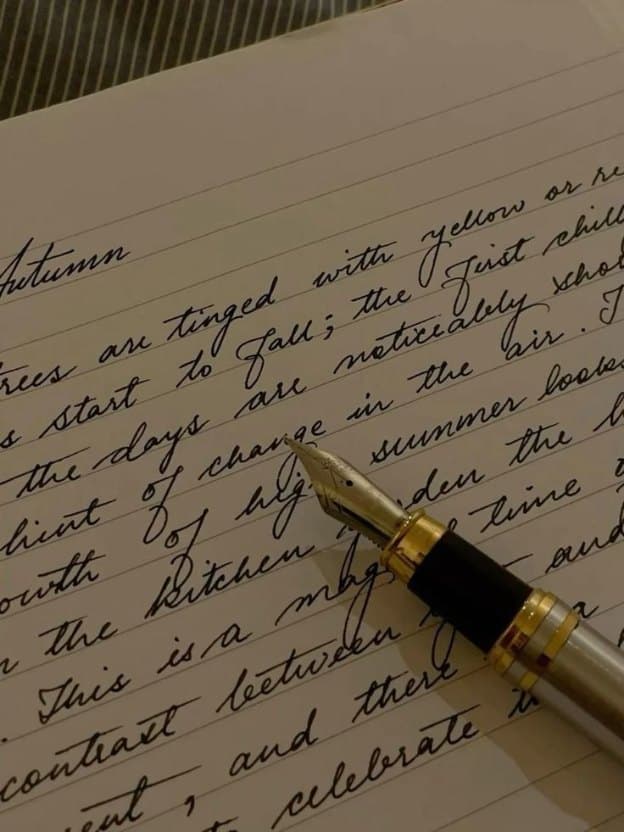 Autumn
trees are tinged with yellow or
start to fall; the first chill
the days are noticeably
hint of change in the air.
of high summer looks
the kitchen the
. This is a time
contrast between and
, and there a
celebrate